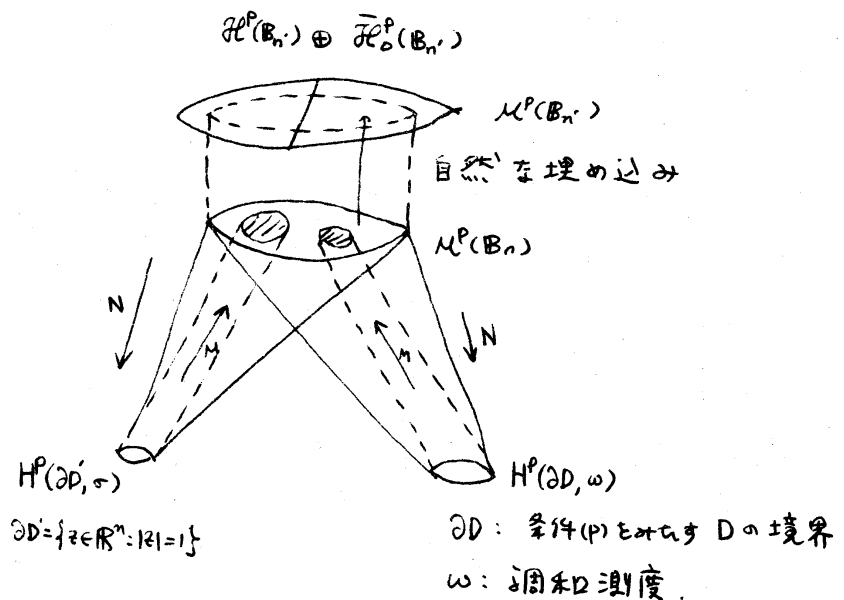 ℋᵖ(𝔹ₙ′) ⊕ ℋ̄₀ᵖ(𝔹ₙ′)
ℳᵖ(𝔹ₙ′)
自然な埋め込み
ℳᵖ(𝔹ₙ)
N
N
M
M
Hᵖ(∂D′, σ)
Hᵖ(∂D, ω)
∂D′={z∈ℝⁿ:|z|=1}
∂D : 条件(P)をみたす Dの境界
ω : 調和測度.